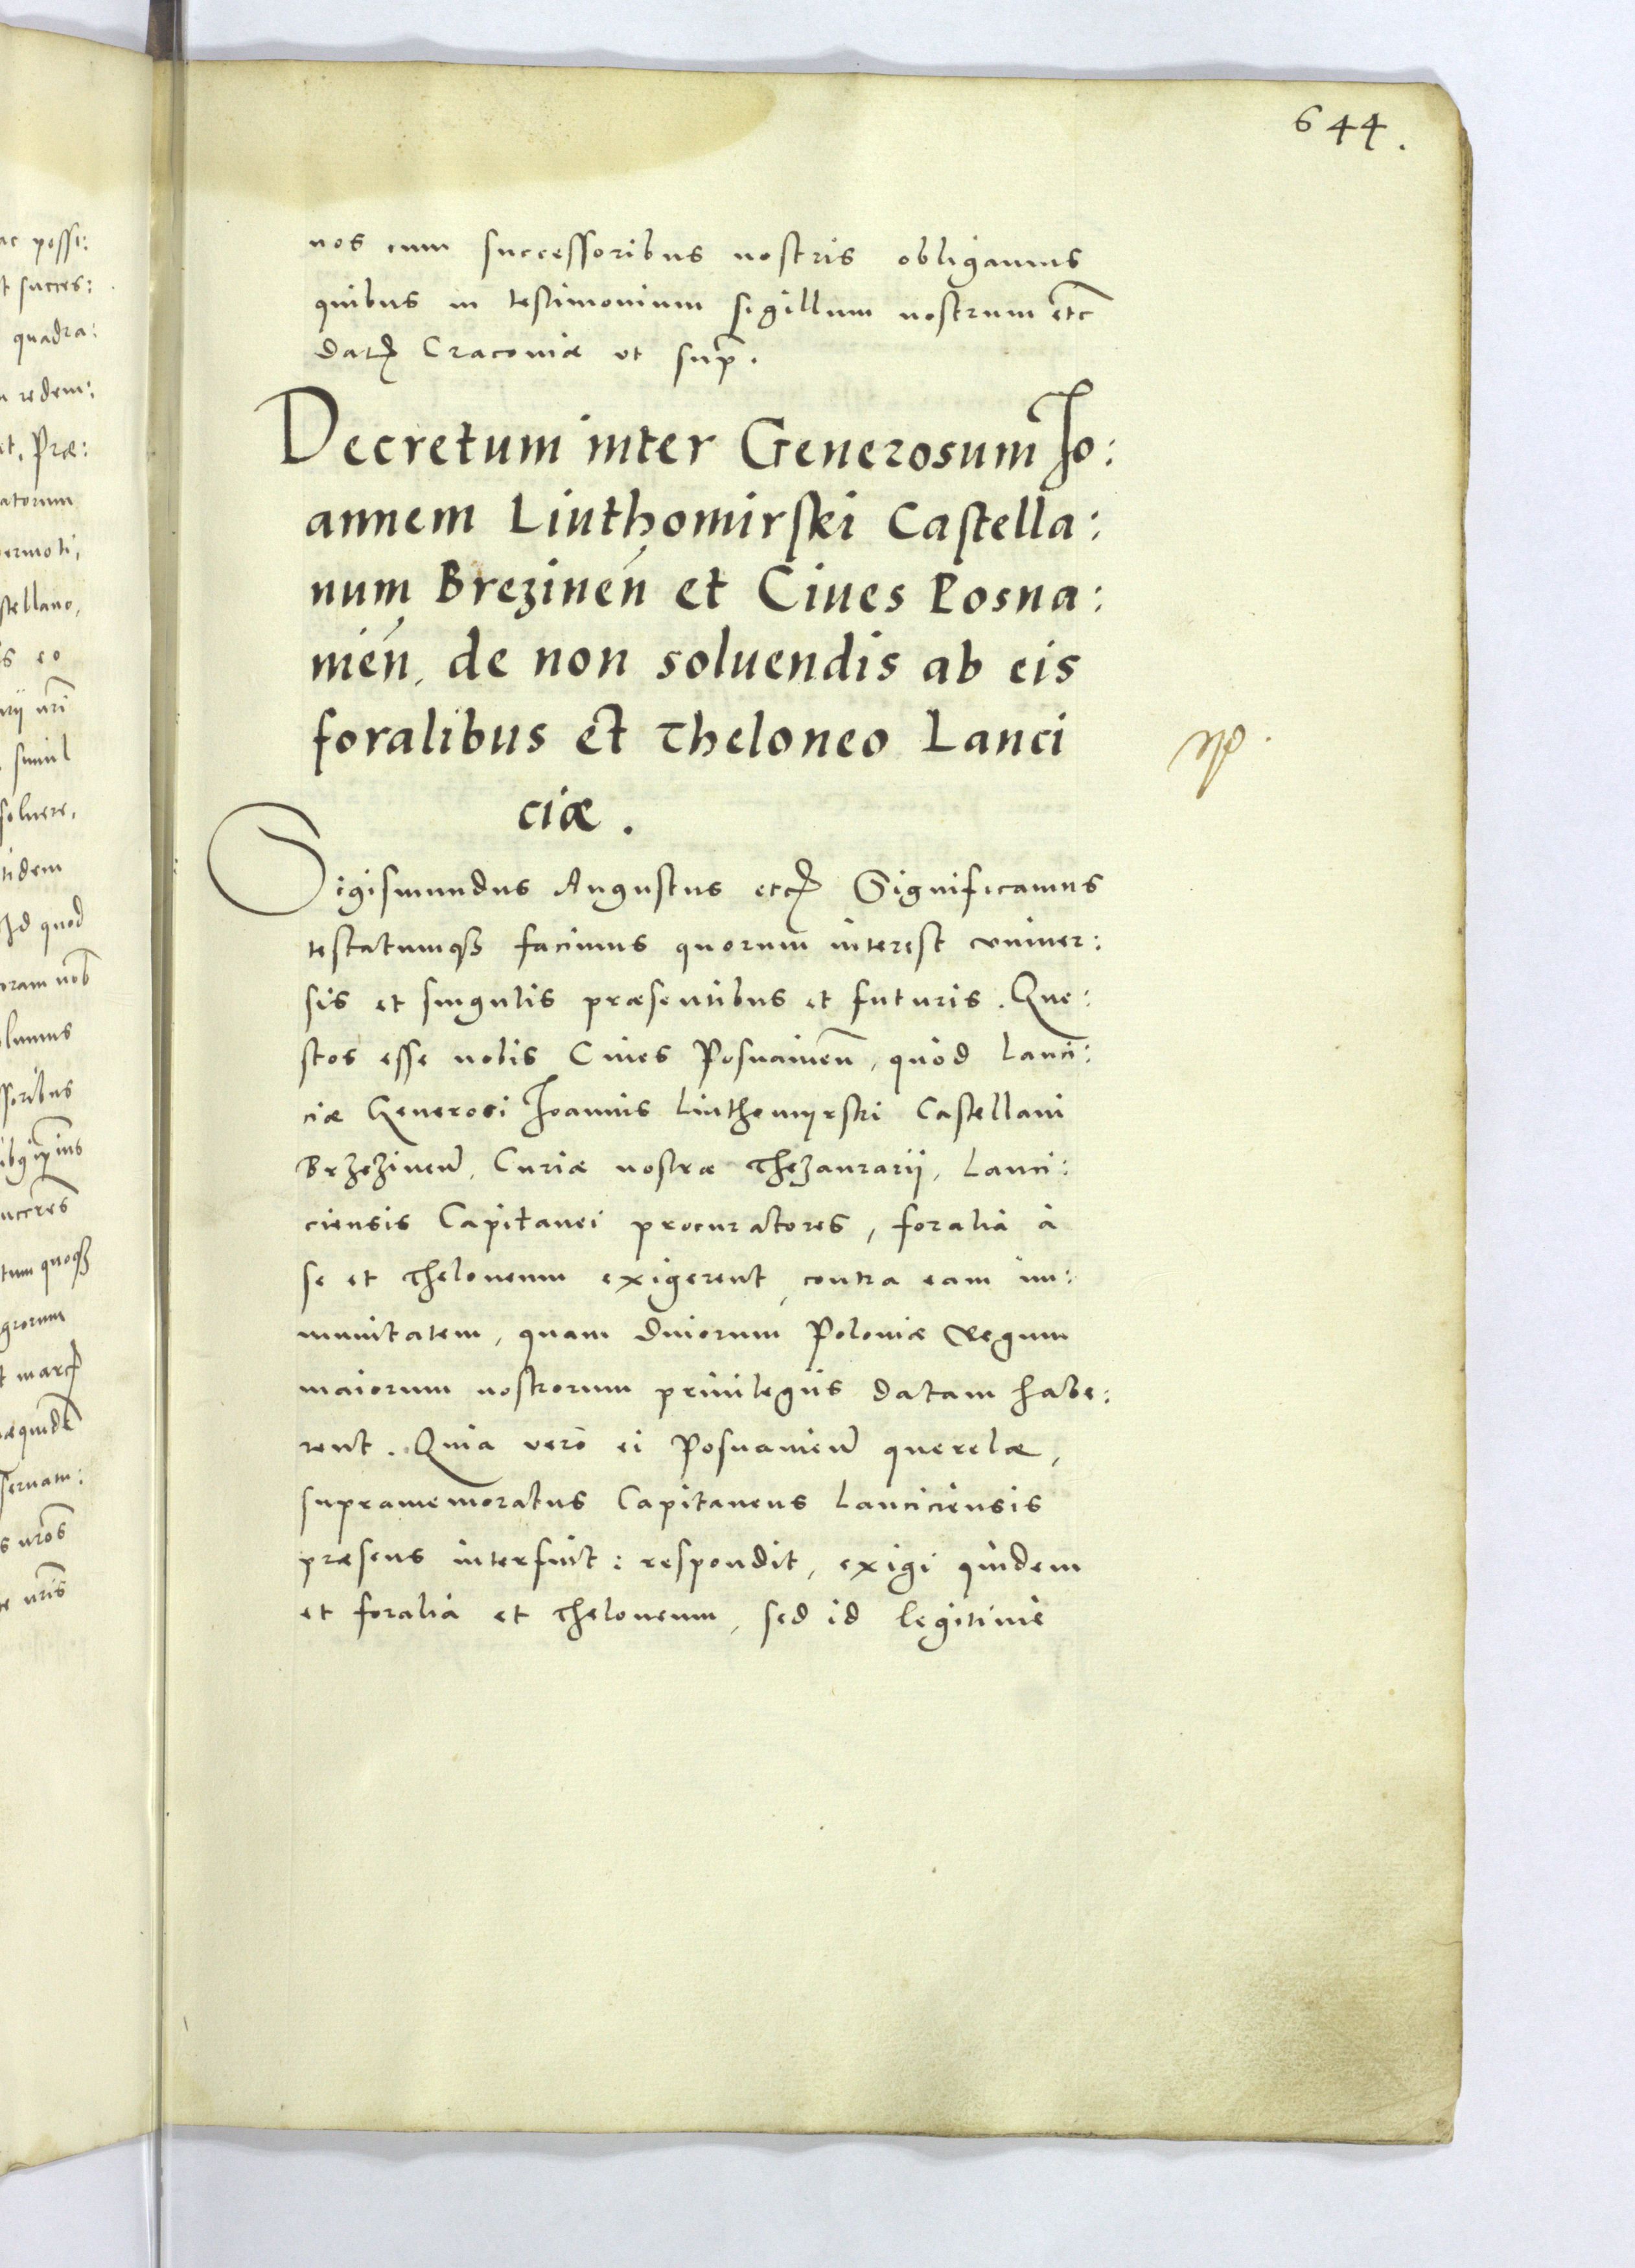 644.
nos cum successoribus nostris obligamus
quibus in testimonium sigillum nostrum etc
Dat Cracoviæ ut sup.
Decretum inter Generosum Jo:
annem Liuthomirski Castella:
num Brezinen et Ciues Posna:
nien, de non soluendis ab eis
foralibus et Theloneo Lanci
ciæ.
Sigismundus Augustus etc Significamus
testatumq3 facimus quorum interest vniuer:
sis et singulis præsentibus et futuris. Que:
stos esse nobis Ciues Posnanien, quòd Lanci:
ciæ Generosi Joannis Liuthomyrski Castellani
Brzezinen, Curiæ nostræ Thezaurarii, Lanci:
ciensis Capitanei procuratores, foralia à
se et Theloneum exigerent, contra eam im:
munitatem, quam Diuorum Poloniæ Regum
maiorum nostrorum priuilegiis datam habe:
rent. Quia verò ei Posnanien querelæ,
supramemoratus Capitaneus Lanciciensis
præsens interfuit: respondit, exigi quidem
et foralia et Theloneum, sed id legitimè
ac possi:
t succes:
quadra:
redem:
t, Præ:
atorum
permoti,
stellano,
is eo
rii nri
simul
soluere,
tidem
Id quod
oram nob
lumus
ssoribus
succres
tum quoq3
grorum
seruam:
s nros
nris